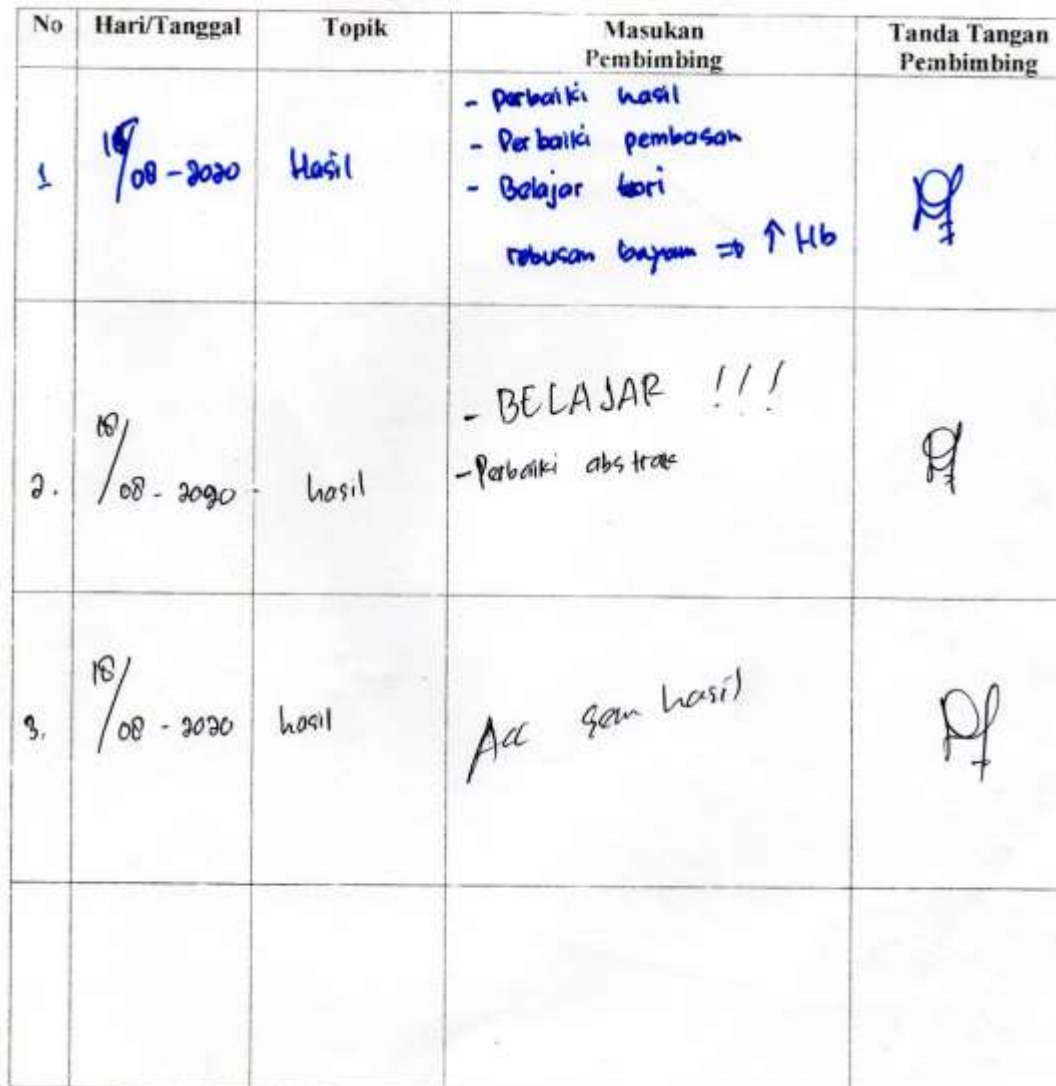 No Hari/Tanggal Topik Masukan Pembimbing Tanda Tangan Pembimbing
1 /08-2020 Hasil
- Perbaiki hasil
- Perbaiki pembasan
- Belajar teori
rebusan bayam ⇒ ↑ Hb
2. 18/08-2020 - hasil
- BELAJAR !!!
- Perbaiki abstrak
3. 18/08-2020 hasil
Acc sem hasil